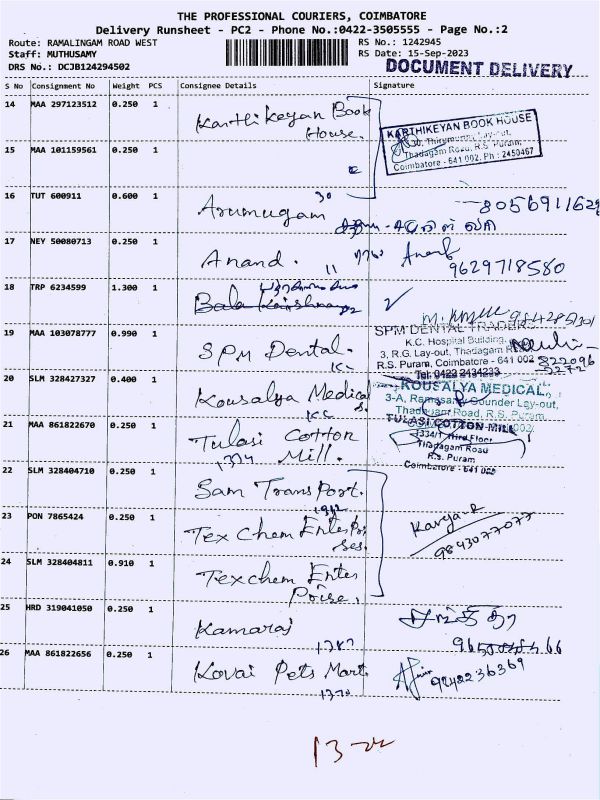 THE PROFESSIONAL COURIERS, COIMBATORE
Delivery Runsheet - PC2 - Phone No.:0422-3505555 - Page No.:2
Route: RAMALINGAM ROAD WEST
RS No.: 1242945
Staff: MUTHUSAMY
RS Date: 15-Sep-2023
DRS No.: DCJB124294502
DOCUMENT DELIVERY
S No Consignment No Weight PCS Consignee Details Signature
14 MAA 297123512 0.250 1 Karthikeyan Book
House.
KARTHIKEYAN BOOK HOUSE
Thadagam Road, R.S. Puram,
Coimbatore - 641 002. Ph : 2450467
15 MAA 101159561 0.250 1
16 TUT 600911 0.600 1 Arumugam 30
8056911629
17 NEY 50080713 0.250 1 Anand. Anand
11 9629718580
18 TRP 6234599 1.300 1
Bala Krishnan
19 MAA 103078777 0.990 1 SPM Dental.
SPM DENTAL TRADER
K.C. Hospital Building,
3, R.G. Lay-out, Thadagam Road
R.S. Puram, Coimbatore - 641 002
822096
20 SLM 328427327 0.400 1 Kousalya Medical
s.
KOUSALYA MEDICAL,
3-A, Ramasamy Gounder Lay-out,
Thadagam Road, R.S. Puram,
21 MAA 861822670 0.250 1 Tulasi Cotton
Mill.
1334
TULASI COTTON MILL
1334/1 Third Floor
Thadagam Road
R.S. Puram
Coimbatore - 641 002
22 SLM 328404710 0.250 1 Sam Transport.
23 PON 7865424 0.250 1 Tex Chem Enterpri
ses.
9843077077
24 SLM 328404811 0.910 1 Texchem Enter
Prise.
25 HRD 319041050 0.250 1 Kamaraj
26 MAA 861822656 0.250 1 Kovai Pets Mart.
1370
9842236369
13-22